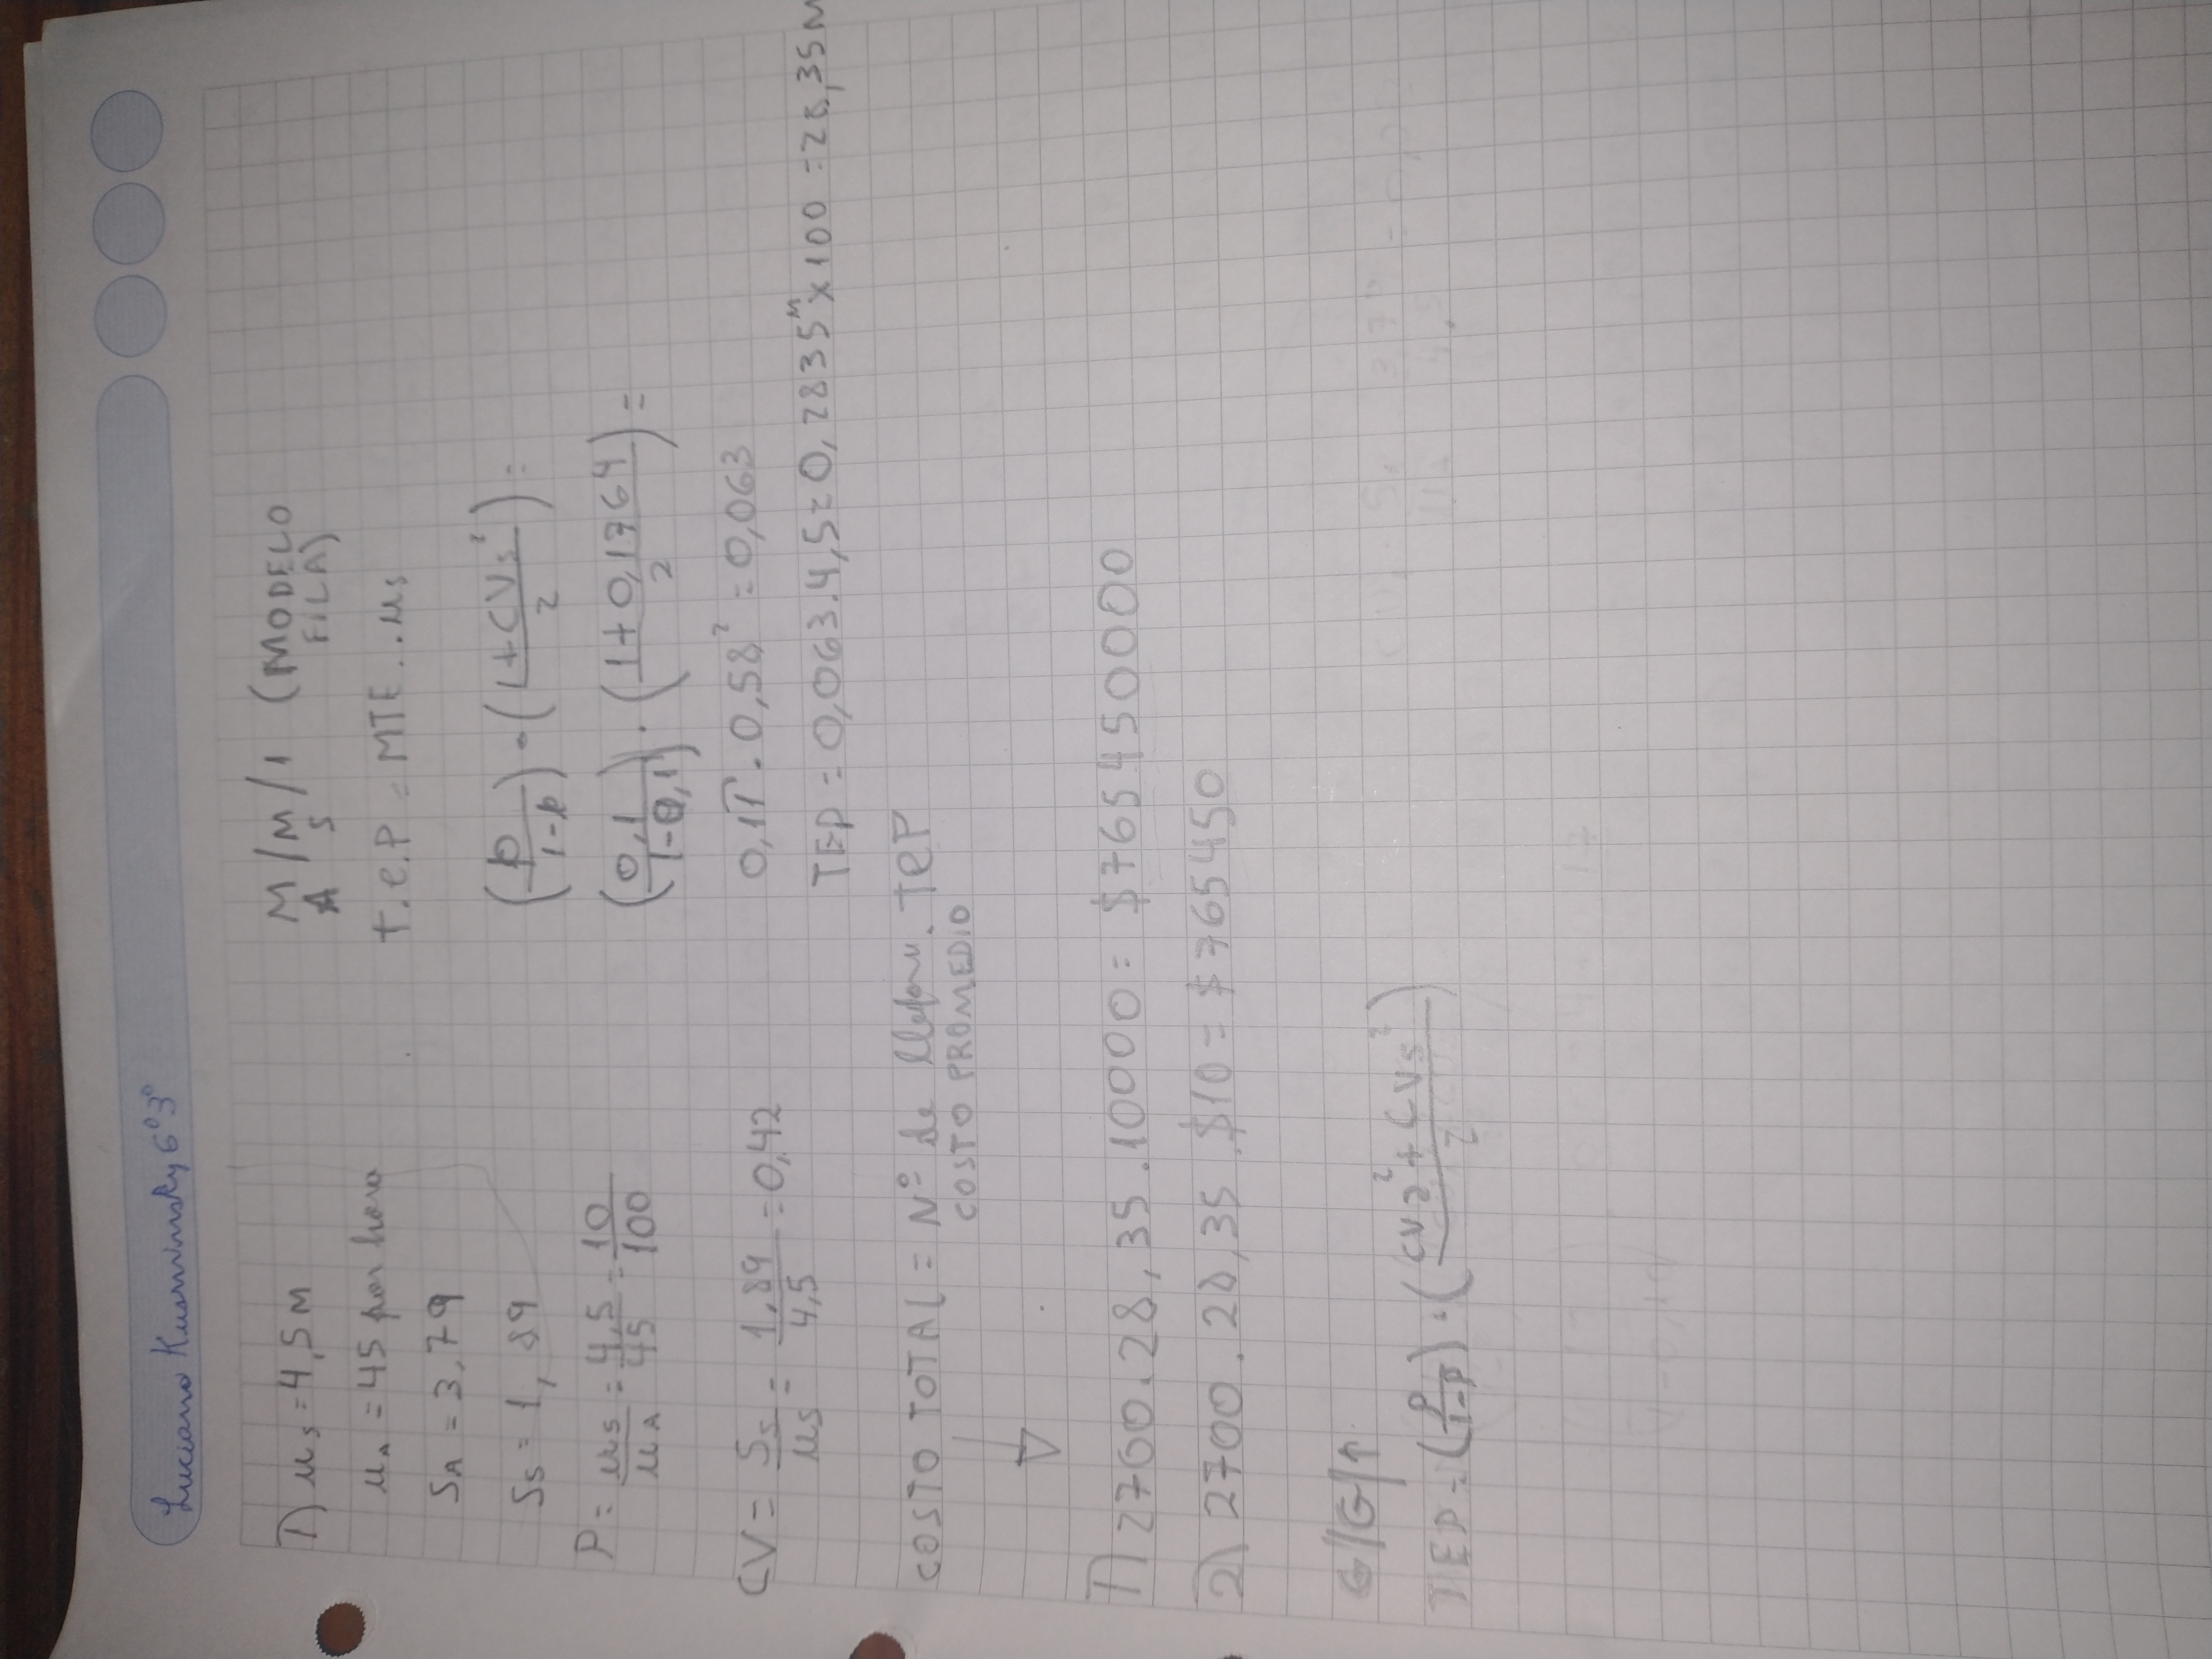 Luciano Kusminsky 6º3º
1) μs = 4,5 M
μA = 45 por hora
SA = 3,79
Ss = 1,89
P = μs/μA = 4,5/45 = 10/100
CV = Ss/μs = 1,89/4,5 = 0,42
M/M/1 (MODELO
A S FILA)
t.e.P = MTE..μs
(p/1-p) · (1+CVs²/2) =
(0,1/1-0,1) · (1+0,1764/2) =
0,11 . 0,58² = 0,063
TEP = 0,063.4,5 = 0,2835ᴹ x 100 = 28,35 M
COSTO TOTAL = Nº de . TEP
COSTO PROMEDIO
1) 2700.28,35.10000 = $765450000
2) 2700.28,35.$10 = $765450
G/G/1
TEP = (P/1-P) · (CVa²+CVs²/2)